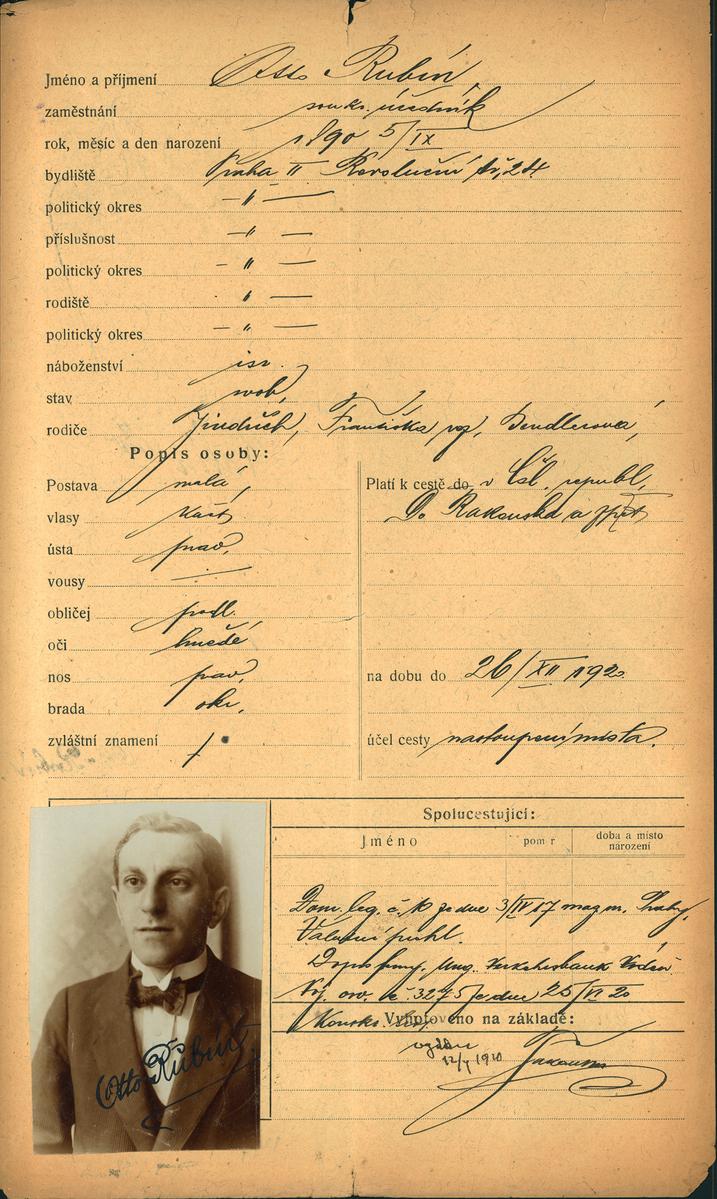 Jméno a příjmení Otto Rubín
zaměstnání soukr. úředník
rok, měsíc a den narození 1890 5/IX
bydliště Praha II Revoluční tř. 24
politický okres — " —
příslušnost — " —
politický okres — " —
rodiště " —
politický okres — " —
náboženství isr.
stav svob.
rodiče Jindřich, Františka, roz.
Popis osoby:
Postava malá,
vlasy kašt.
ústa prav.
vousy
obličej podl.
oči hnědé
nos prav.
brada okr.
zvláštní znamení /.
Platí k cestě do v Čsl. republ.
Do Rakouska a zpět
na dobu do 26/XII 1920
účel cesty nastoupení místa.
Spolucestující:
Jméno
pom r
doba a místo
narození
Dom. leg. č. ze dne 3/IV 17 mag. m. Prahy.
Valutní prohl.
Dopis firmy. Ung. Verkehrsbank
Voj. osv. č. 3275 ze dne 25/VI 20
Vyhotoveno na základě:
12/V 1920
Otto Rubín